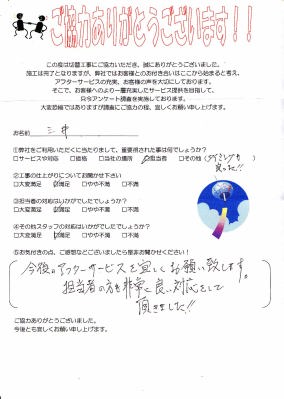 ご協力ありがとうございます！！
この度は切替工事にご協力いただき、誠にありがとうございました。
施工は完了となりますが、弊社ではお客様とのお付き合いはここから始まると考え、
アフターサービスの充実、お客様の声を大切にしております。
そこで、お客様へのより一層充実したサービス提供を目指して、
アンケート調査を実施しております。
大変恐縮ではありますが調査にご協力の程、宜しくお願い申し上げます。
お名前 三井
①弊社をご利用いただくに当たりまして、重要視された事は何でしょうか？
□サービスや対応 □価格 □当社の場所 ☑担当者 □その他（タイミングも
良った!!）
②工事の仕上がりについてお聞かせ下さい
□大変満足 ☑満足 □やや不満 □不満
③担当者の対応はいかがでしたでしょうか？
☑大変満足 □満足 □やや不満 □不満
④その他スタッフの対応はいかがでしたでしょうか？
□大変満足 ☑満足 □やや不満 □不満
⑤お気付きの点、ご感想などございましたら是非お聞かせください！
今後のアフターサービスを宜しくお願い致します。
担当者の方も非常に良い対応をして
頂きました!!
ご協力ありがとうございました。
今後とも宜しくお願い申し上げます。